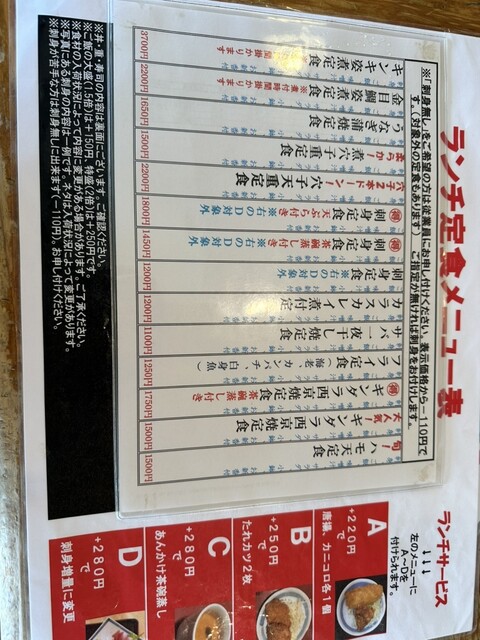 ランチ定食メニュー表
※「刺身無し」をご希望の方は従業員にお申し付けください、表示価格から－110円で
す。（対象外の定食もあります） ご指定が無ければ刺身をお付けします。
旬！ハモ天定食 1500円
大人気！ギンダラ西京焼定食 1500円
得 ギンダラ西京焼定食 茶碗蒸し付き 1750円
フライ定食（海老、カンパチ、白身魚） 1250円
サバ一夜干し定食 1100円
カラスカレイ煮付定食 1200円
刺身定食 ※右のD対象外 1200円
得 刺身定食 茶碗蒸し付き ※右のD対象外 1450円
得 刺身定食 天ぷら付き ※右のD対象外 1800円
穴子2本ドーン！穴子天重定食 2200円
柔らか！煮穴子重定食 1500円
うなぎ蒲焼定食 1650円
金目鯛姿煮定食 2200円
キンキ姿煮定食 3700円
※丼・重・寿司の内容は裏面にございます。ご確認ください。
※ご飯の大盛（1.5倍）は＋150円、特盛（2倍）は＋250円です。
※食材の入荷状況によって内容に変更がある場合があります。ご了承ください。
※写真にある刺身の内容は一例です。ネタは入荷状況によって変更があります。
※刺身が苦手な方は刺身無しに出来ます（－110円）。お申し付けください。
ランチサービス
↓↓↓
左のメニューに
A～Dを
付けられます。
A
+220円で
唐揚、カニコロ各1個
B
+250円で
たれカツ2枚
C
+280円で
あんかけ茶碗蒸し
D
+280円で
刺身増量に変更